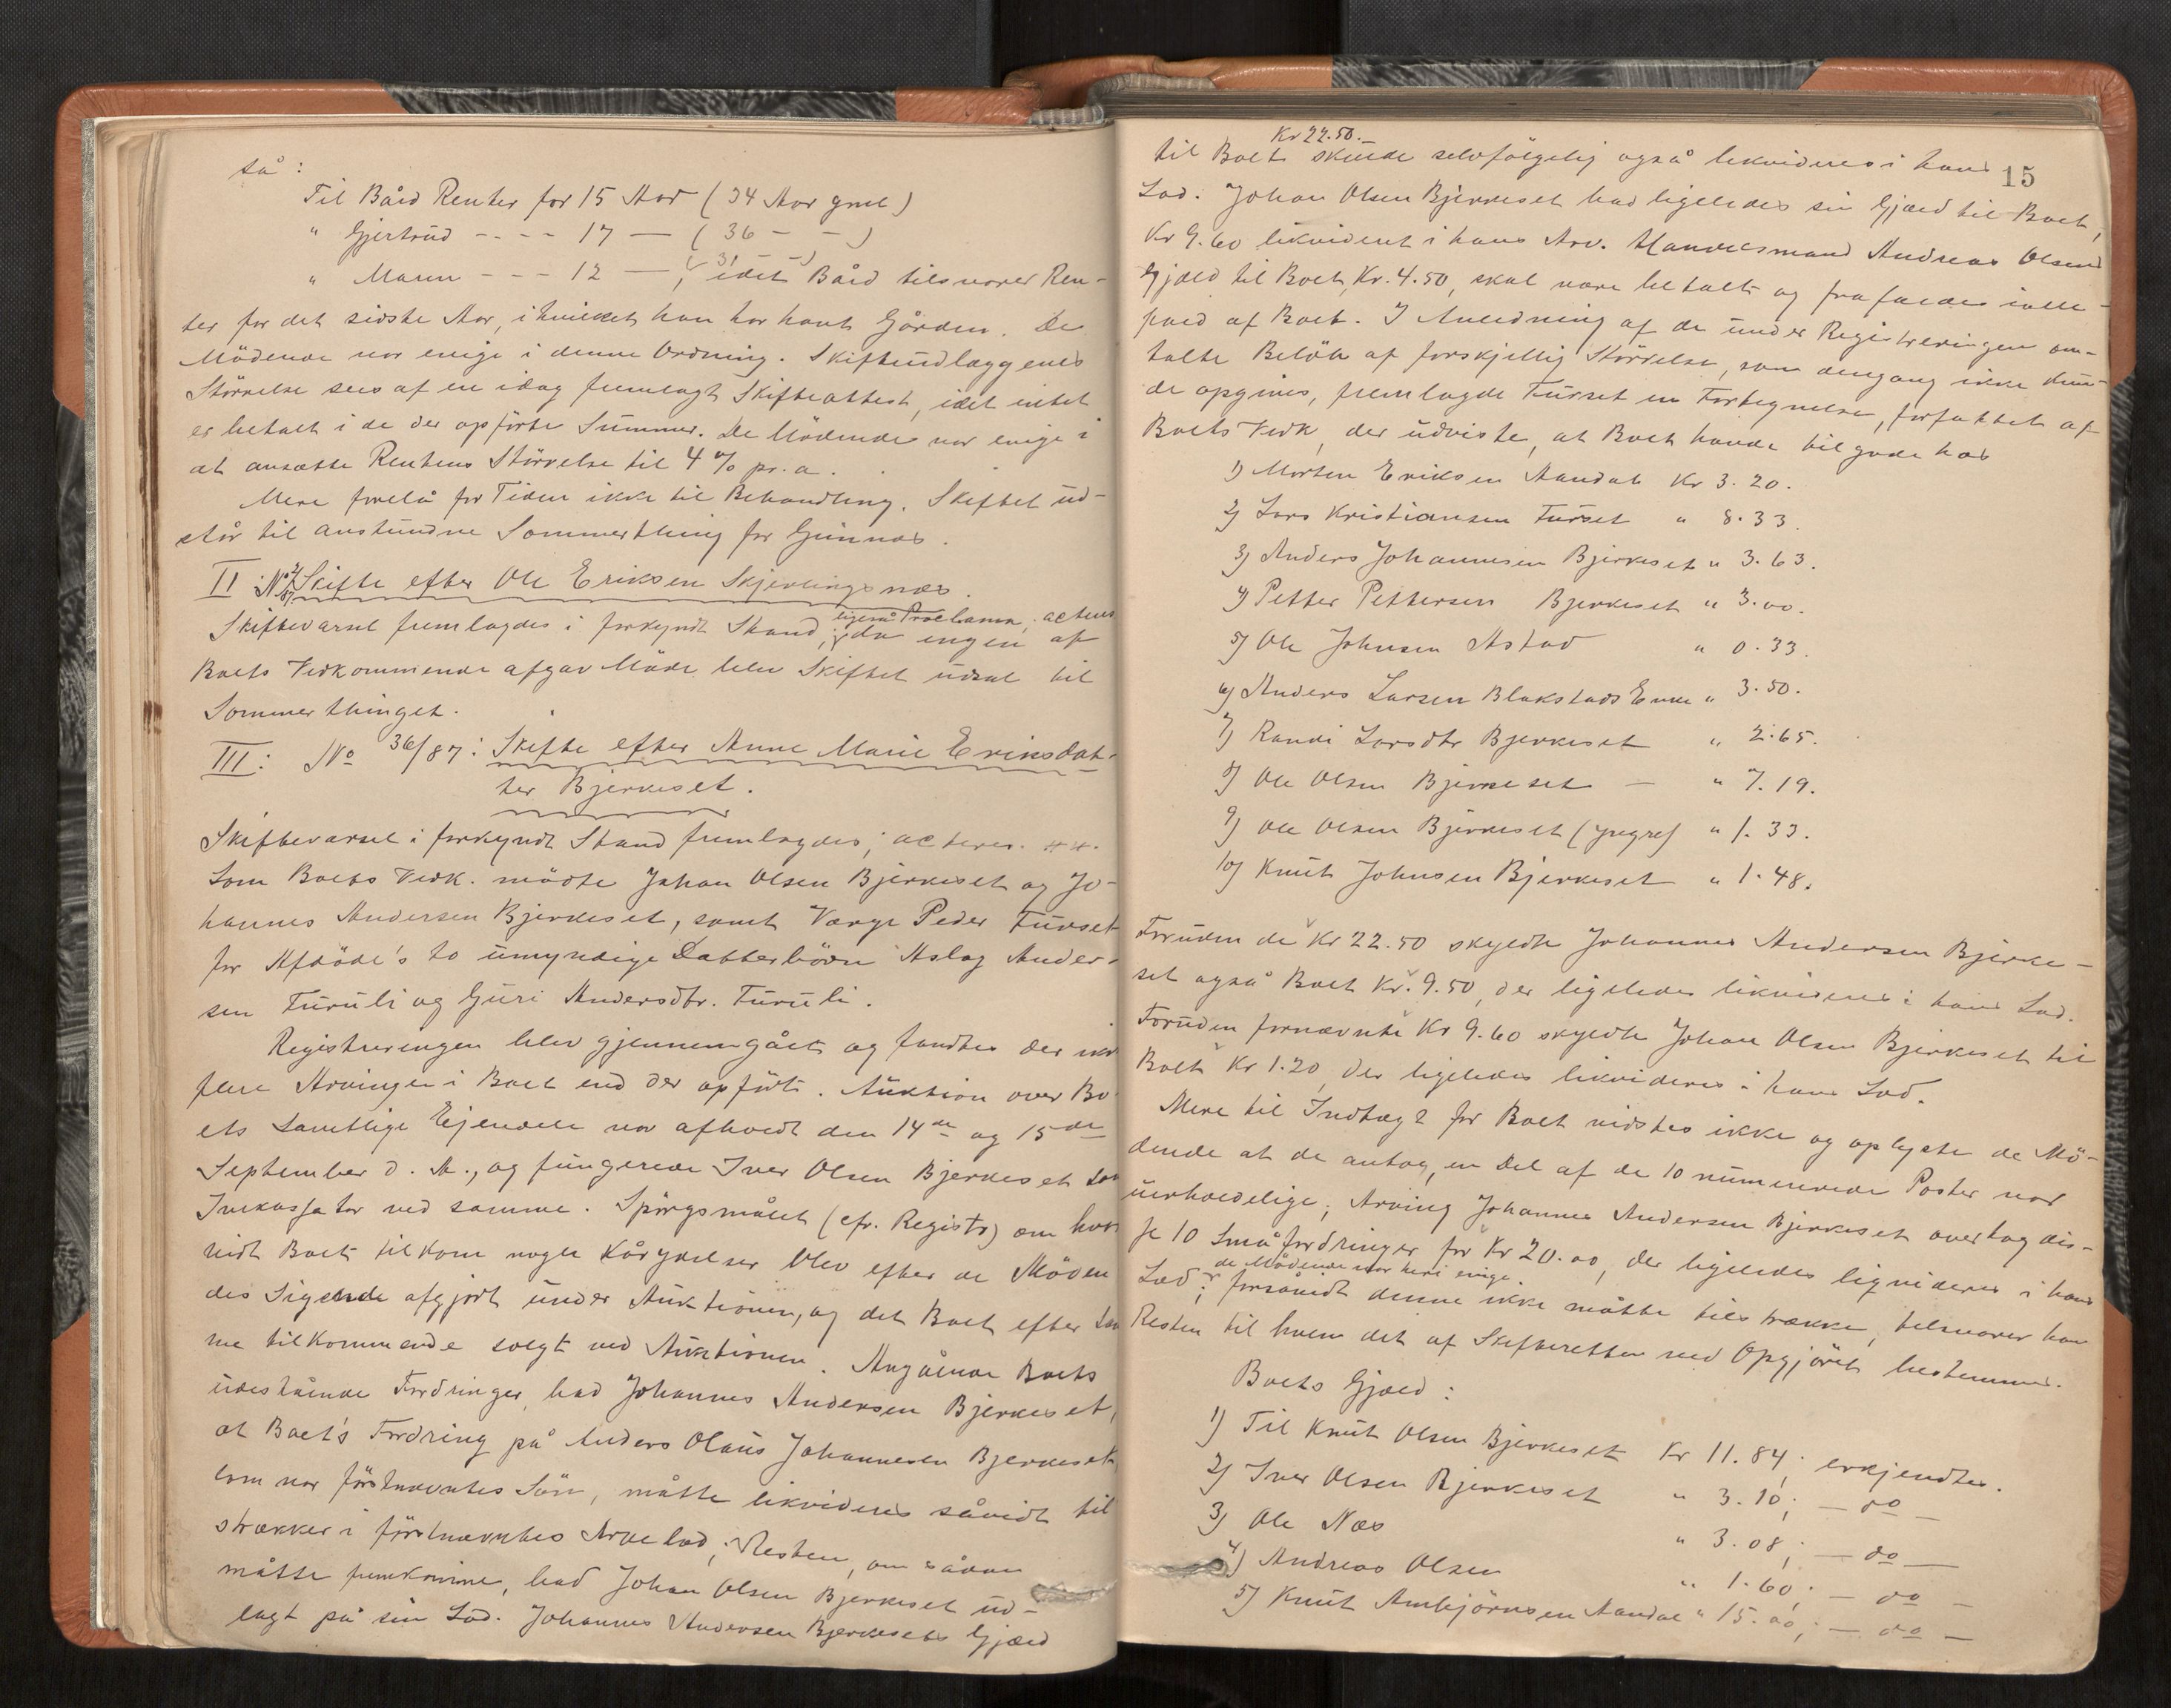 så:
Til Båid Renter for 15 Aar (34 Aar gml)
" Gjertrud - - - - 17 — (36 — — )
" Maren - - - 12 — (31 — — ), idet Båid tilsvarer Ren-
ter for det sidste Aar, i hvilket han har havt Gården. De
Mödende var enige i denne Ordning. Skifteudlæggenes
Störrelse sees af en idag fremlagt Skifteattest, idet intet
er betalt i de der opförte Summer. De Mödende var enige i
at ansætte Rentens Störrelse til 4 % pr. a.
Mere forelå for Tiden ikke til Behandling. Skiftet ud-
står til anstundne Sommerthing for Gimnæs.
II: No 2/87 Skifte efter Ole Eriksen Skjerlingsnæs.
Skiftevarsel fremlagdes i forkyndt Stand, ligeså Proclama; acteres
; da ingen af
Boets Vedkommende afgav Möde blev Skiftet udsat til
Sommerthinget.
III: No 36/87: Skifte efter Anne Marie Eriksdat-
ter Bjerkeset.
Skiftevarsel i forkyndt Stand fremlagdes; acteres.
Som Boets Vedk. mödte Johan Olsen Bjerkeset og Jo-
hannes Andersen Bjerkeset, samt Værge Peder Furset
for Afdöde's to umyndige Datterbörn Aslag Ander-
sen Furuli og Guri Andersdtr. Furuli.
Registreringen blev gjennemgået og fandtes der ikke
flere Arvinger i Boet end der opfört. Auktion over Bo-
ets samtlige Ejendele var afholdt den 14de og 15de
September d. A., og fungerede Iver Olsen Bjerkeset som
Inkassator ved samme. Spörgsmålet (cfr. Registr) om hvor-
vidt Boet tilkom nogle Kårydelser blev efter de Möden
des Sigende afgjört under Auktionen, og det Boet efter sam
me tilkommende solgt ved Auktionen. Angående Boets
udestående Fordringer, bad Johannes Andersen Bjerkeset,
at Boet's Fordring på Anders Olaus Johannesen Bjerkeset,
som var förstnævntes Sön, måtte likvideres såvidt til
strækker i förstnævntes Arvelod; Resten, om sådan
måtte fremkomme, bad Johan Olsen Bjerkeset ud-
lagt på sin Lod. Johannes Andersen Bjerkesets Gjæld
15
Kr 22.50.
til Boet skulde selvfölgelig også likvideres i hans
Lod. Johan Olsen Bjerkeset bad ligeledes sin Gjæld til Boet,
Kr 9.60 likvideret i hans Arv. Handelsmand Andreas Olsens
Gjæld til Boet, Kr. 4.50, skal være betalt og frafaldes
af Boet. I Anledning af de under Registreringen om-
talte Belöb af forskjellig Störrelse, som dengang ikke kun-
de opgives, fremlagde Furset en Fortegnelse, forfattet af
Boets Vedk, der udviste, at Boet havde tilgode hos
1) Morten Eriksen Aandal Kr 3.20.
2) Lars Kristiansen Furset " 8.33.
3) Anders Johannesen Bjerkeset " 3.63.
4) Petter Pettersen Bjerkeset " 3.00.
5) Ole Johnsen Astad " 0.33.
6) Anders Larsen Blakstads Enke " 3.50.
7) Randi Larsdtr Bjerkeset " 2.65.
8) Ole Olsen Bjerkeset — " 7.19.
9) Ole Olsen Bjerkeset (yngre) " 1.33.
10) Knut Johnsen Bjerkeset " 1.48.
Foruden de Kr 22.50 skyldte Johannes Andersen Bjerke-
set også Boet Kr. 9.50, der ligeledes likvideres i hans Lod.
Foruden fornævnte Kr 9.60 skyldte Johan Olsen Bjerkeset til
Boet Kr 1.20, der ligeledes likvideres i hans Lod.
Mere til Indtægt for Boet vidstes ikke og oplyste de Mö-
dende at de antog, en Del af de 10 nummerede Poster var
uerholdelige; Arving Johannes Andersen Bjerkeset overtog dis-
se 10 Småfordringer for Kr 20.00, der ligeledes liqvideres i hans
de Mödende var heri enige.
Lod; forsåvidt denne ikke måtte tilstrække, tilsvarer han
Resten til hvem det af Skifteretten ved Opgjöret bestemmes.
Boets Gjæld:
1) Til Knut Olsen Bjerkeset Kr 11.84; erkjendtes.
2) Iver Olsen Bjerkeset " 3.10; — do —
3) Ole Næs " 3.08; — do —
4) Andreas Olsen " 1.60; — do —
5) Knut Arnbjörnsen Aandal " 15.00; — do —